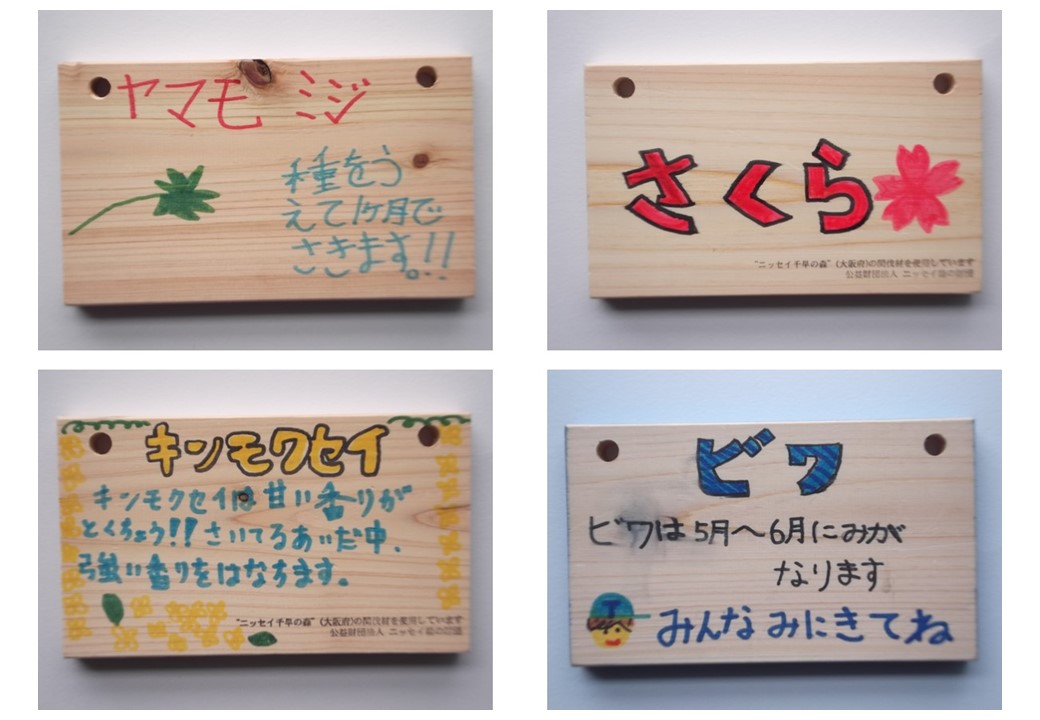 ヤマモミジ
種をう
えて1ヶ月で
さきます。!!
さくら
"ニッセイ千早の森" (大阪府)の間伐材を使用しています
公益財団法人 ニッセイ緑の財団
キンモクセイ
キンモクセイは甘い香りが
とくちょう!! さいてるあいだ中、
強い香りをはなちます。
"ニッセイ千早の森" (大阪府)の間伐材を使用しています
公益財団法人 ニッセイ緑の財団
ビワ
ビワは5月〜6月にみが
なります
みんなみにきてね